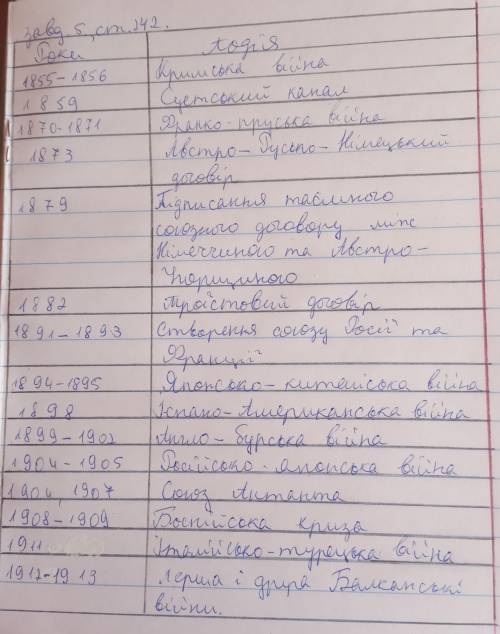 завд 5, ст. 242.
Роки Подія
1855-1856 Кримська війна
1859 Суетський канал
1870-1871 Франко-пруська війна
1873 Австро-Русько-Німецький
договір
1879 Підписання таємного
союзного договору між
Німеччиного та Австро-
Угорщиного
1882 Тройстовий договір
1891-1893 Створення союзу Росії та
Франції
1894-1895 Японсько-китайська війна
1898 Іспано-Американська війна
1899-1902 Англо-бурська війна
1904-1905 Російсько-японська війна
1904, 1907 Союз Антанта
1908-1909 Боснійська криза
1911 Італійсько-турецька війна
1912-1913 Перша і друга Балканські
війни.